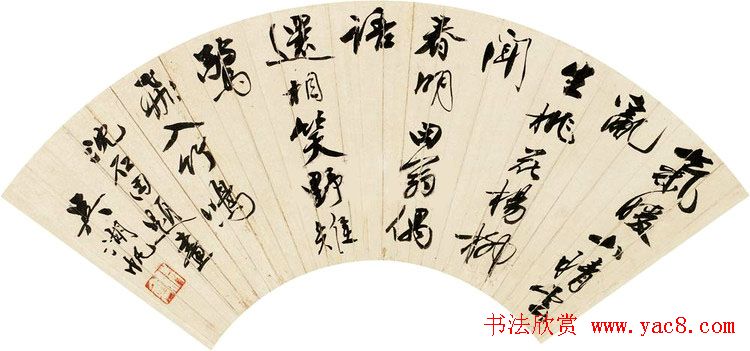 氣暖山晴雲
亂
生桃花楊柳
鬧
春明田翁偶
語
還相笑野雉
驚
飛入竹鳴
沈石田題畫
吳湖帆
书法欣赏 www.yac8.com